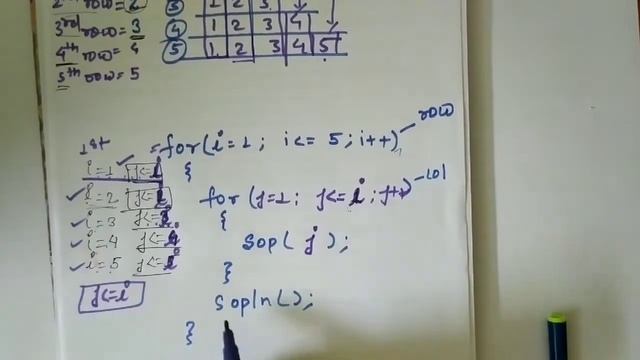 2nd row = 2
3rd row = 3
4th row = 4
5th row = 5
③ 1 2 3
④ 1 2 3 4
⑤ 1 2 3 4 5
1st
for(i=1; i<= 5; i++) row
i=1 j<=i {
i=2 j<=i for (j=1; j<=i; j++) col
i=3 j<=i {
i=4 j<=i Sop( j );
i=5 j<=i }
j<=i Sopln();
}